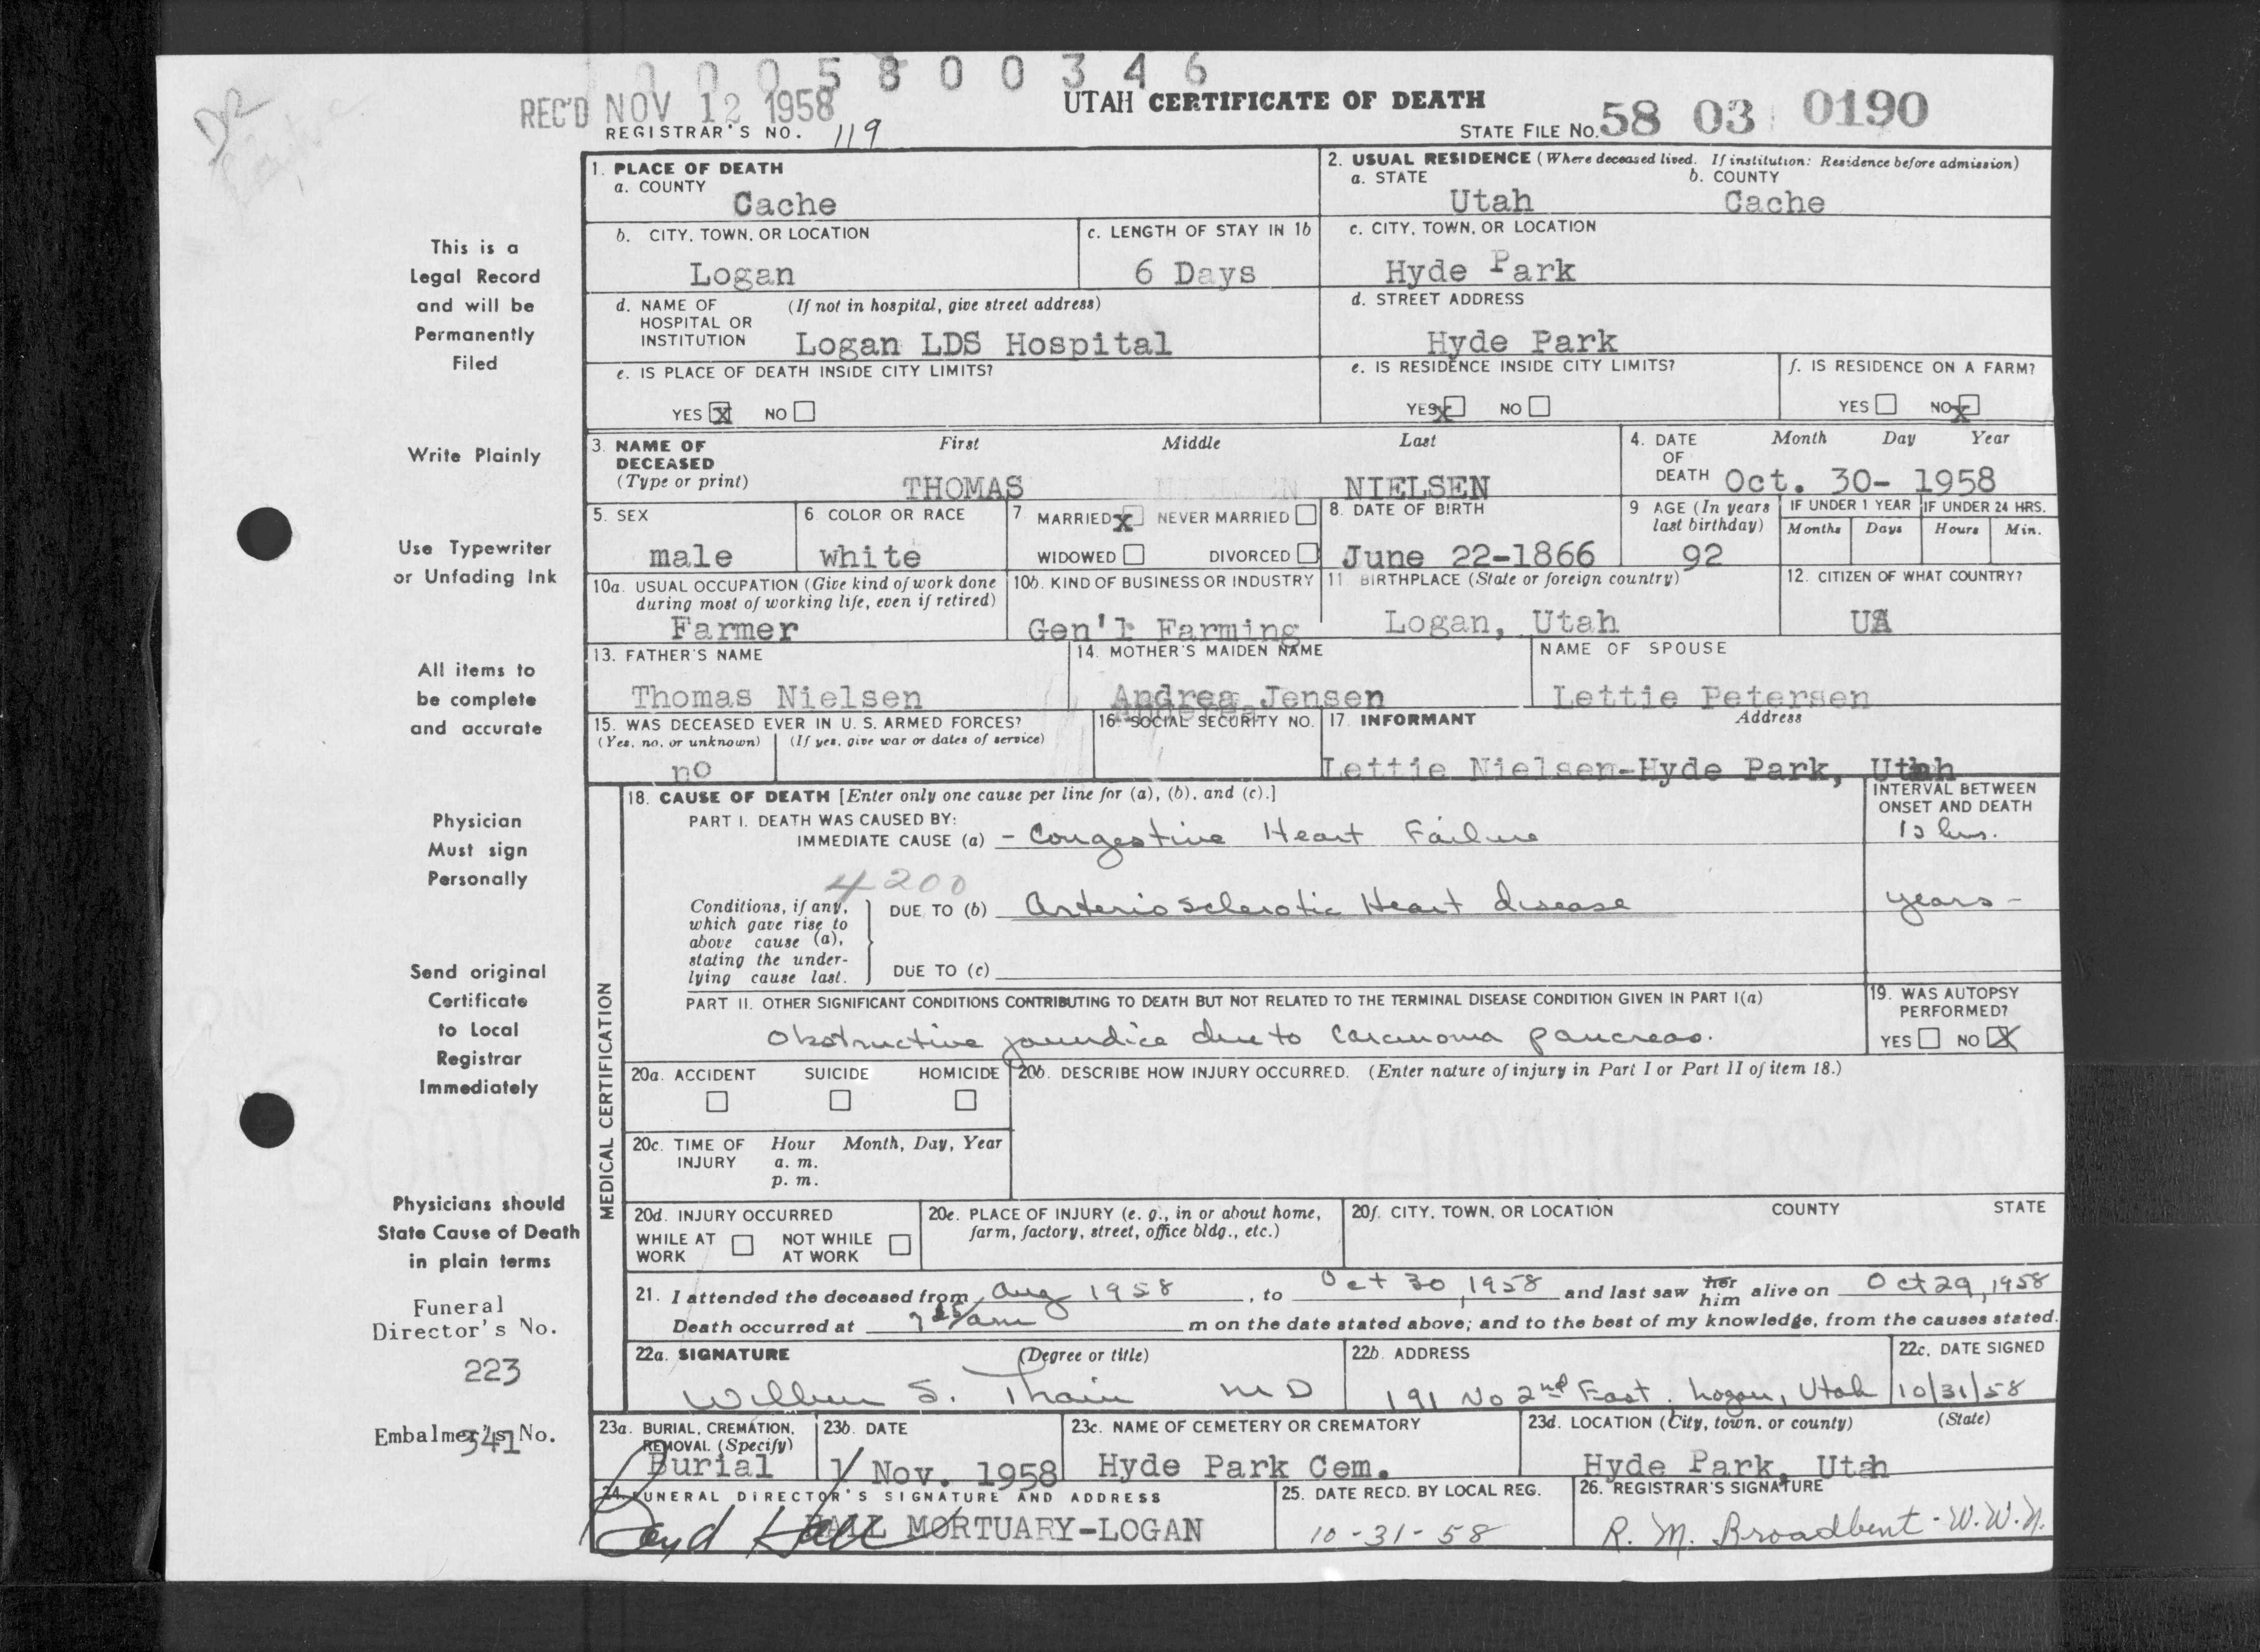 0005800346
REC'D NOV 12 1958
UTAH CERTIFICATE OF DEATH
REGISTRAR'S NO. 119
STATE FILE NO. 58 03 0190
This is a
Legal Record
and will be
Permanently
Filed
Write Plainly
Use Typewriter
or Unfading Ink
All items to
be complete
and accurate
Physician
Must sign
Personally
Send original
Certificate
to Local
Registrar
Immediately
Physicians should
State Cause of Death
in plain terms
Funeral
Director's No.
223
Embalmer's No.
341
1. PLACE OF DEATH
a. COUNTY
Cache
2. USUAL RESIDENCE (Where deceased lived. If institution: Residence before admission)
a. STATE b. COUNTY
Utah Cache
b. CITY, TOWN, OR LOCATION
Logan
c. LENGTH OF STAY IN 1b
6 Days
c. CITY, TOWN, OR LOCATION
Hyde Park
d. NAME OF (If not in hospital, give street address)
HOSPITAL OR
INSTITUTION Logan LDS Hospital
d. STREET ADDRESS
Hyde Park
e. IS PLACE OF DEATH INSIDE CITY LIMITS?
YES X NO
e. IS RESIDENCE INSIDE CITY LIMITS?
YES X NO
f. IS RESIDENCE ON A FARM?
YES NO X
3. NAME OF First Middle Last
DECEASED
(Type or print) THOMAS NIELSEN
4. DATE Month Day Year
OF
DEATH Oct. 30- 1958
5. SEX
male
6. COLOR OR RACE
white
7 MARRIED X NEVER MARRIED
WIDOWED DIVORCED
8. DATE OF BIRTH
June 22-1866
9 AGE (In years
last birthday)
92
IF UNDER 1 YEAR IF UNDER 24 HRS.
Months Days Hours Min.
10a. USUAL OCCUPATION (Give kind of work done
during most of working life, even if retired)
Farmer
10b. KIND OF BUSINESS OR INDUSTRY
Gen'l Farming
11. BIRTHPLACE (State or foreign country)
Logan, Utah
12. CITIZEN OF WHAT COUNTRY?
13. FATHER'S NAME
Thomas Nielsen
14. MOTHER'S MAIDEN NAME
Andrea Jensen
NAME OF SPOUSE
Lettie Petersen
15. WAS DECEASED EVER IN U. S. ARMED FORCES?
(Yes, no, or unknown) (If yes, give war or dates of service)
no
16. SOCIAL SECURITY NO.
17. INFORMANT Address
Lettie Nielsen-Hyde Park, Utah
MEDICAL CERTIFICATION
18. CAUSE OF DEATH [Enter only one cause per line for (a), (b), and (c).]
INTERVAL BETWEEN
ONSET AND DEATH
PART I. DEATH WAS CAUSED BY:
IMMEDIATE CAUSE (a) - Congestive Heart Failure
hrs.
4200
Conditions, if any,
which gave rise to
above cause (a),
stating the under-
lying cause last.
DUE TO (b) Arteriosclerotic Heart disease
years -
DUE TO (c)
PART II. OTHER SIGNIFICANT CONDITIONS CONTRIBUTING TO DEATH BUT NOT RELATED TO THE TERMINAL DISEASE CONDITION GIVEN IN PART I(a)
Obstructive jaundice due to Carcinoma pancreas.
19. WAS AUTOPSY
PERFORMED?
YES NO X
20a. ACCIDENT SUICIDE HOMICIDE
20b. DESCRIBE HOW INJURY OCCURRED. (Enter nature of injury in Part I or Part II of item 18.)
20c. TIME OF Hour Month, Day, Year
INJURY a. m.
p. m.
20d. INJURY OCCURRED
WHILE AT NOT WHILE
WORK AT WORK
20e. PLACE OF INJURY (e. g., in or about home,
farm, factory, street, office bldg., etc.)
20f. CITY, TOWN, OR LOCATION COUNTY STATE
21. I attended the deceased from Aug 1958, to Oct 30, 1958 and last saw her him alive on Oct 29, 1958
Death occurred at am m on the date stated above; and to the best of my knowledge, from the causes stated.
22a. SIGNATURE (Degree or title)
S. Thain MD
22b. ADDRESS
191 No 2nd East. Logan, Utah
22c. DATE SIGNED
10/31/58
23a. BURIAL, CREMATION,
REMOVAL (Specify)
Burial
23b. DATE
1 Nov. 1958
23c. NAME OF CEMETERY OR CREMATORY
Hyde Park Cem.
23d. LOCATION (City, town, or county) (State)
Hyde Park, Utah
24. FUNERAL DIRECTOR'S SIGNATURE AND ADDRESS
Hall
HALL MORTUARY-LOGAN
25. DATE RECD. BY LOCAL REG.
10-31-58
26. REGISTRAR'S SIGNATURE
R. M. Broadbent - W.W.N.